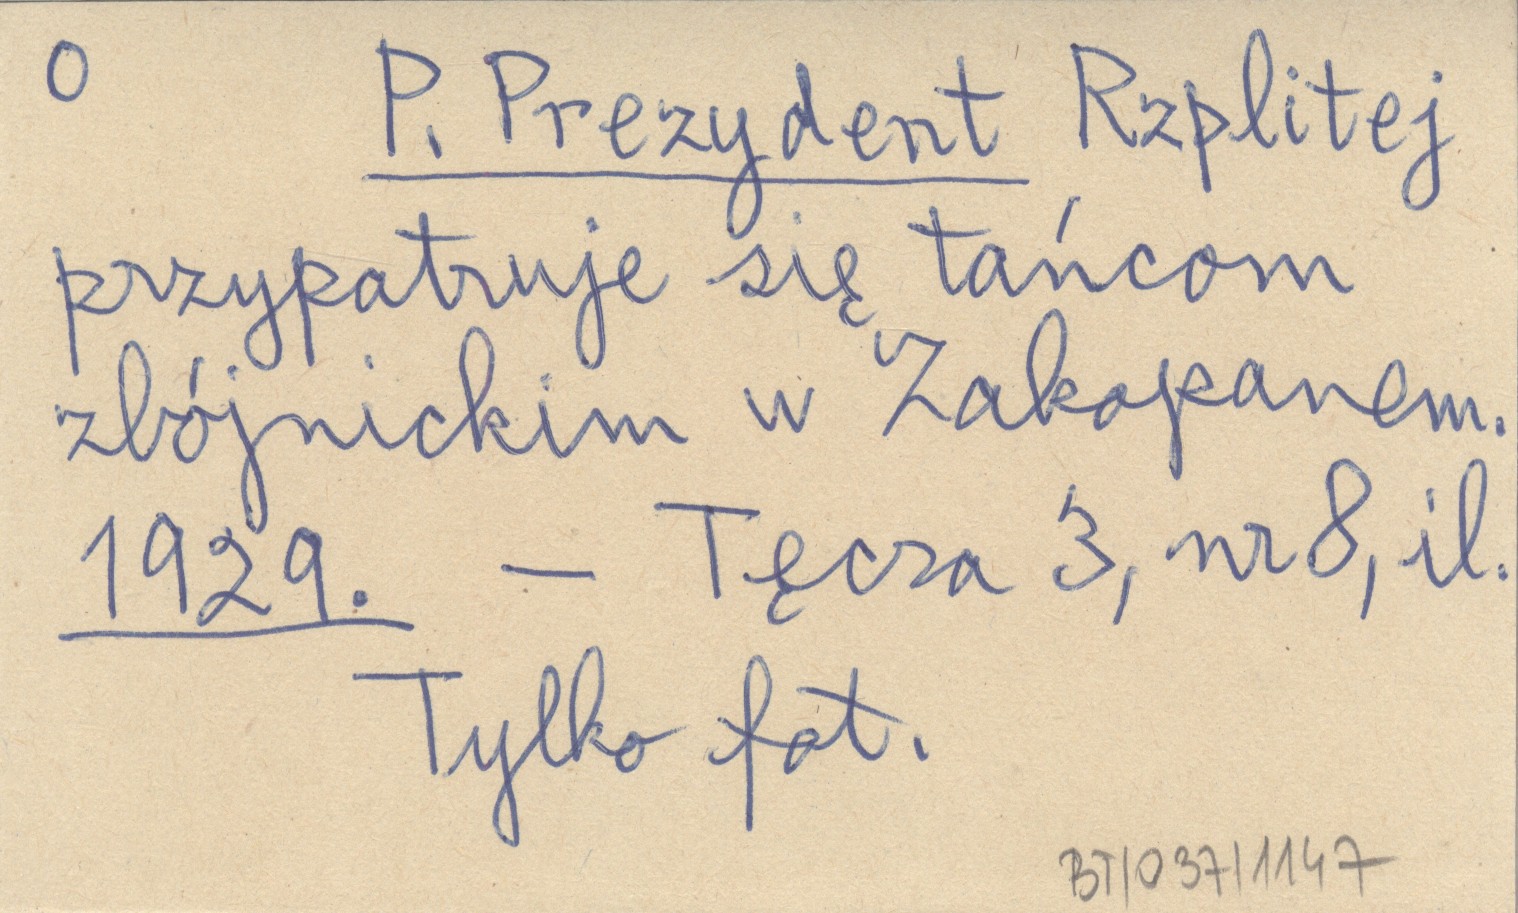 O P. Prezydent Rzplitej
przypatruje się tańcom
zbójnickim w Zakopanem.
1929. — Tęcza 3, nr 8, il.
Tylko fot.
BT/037/1147